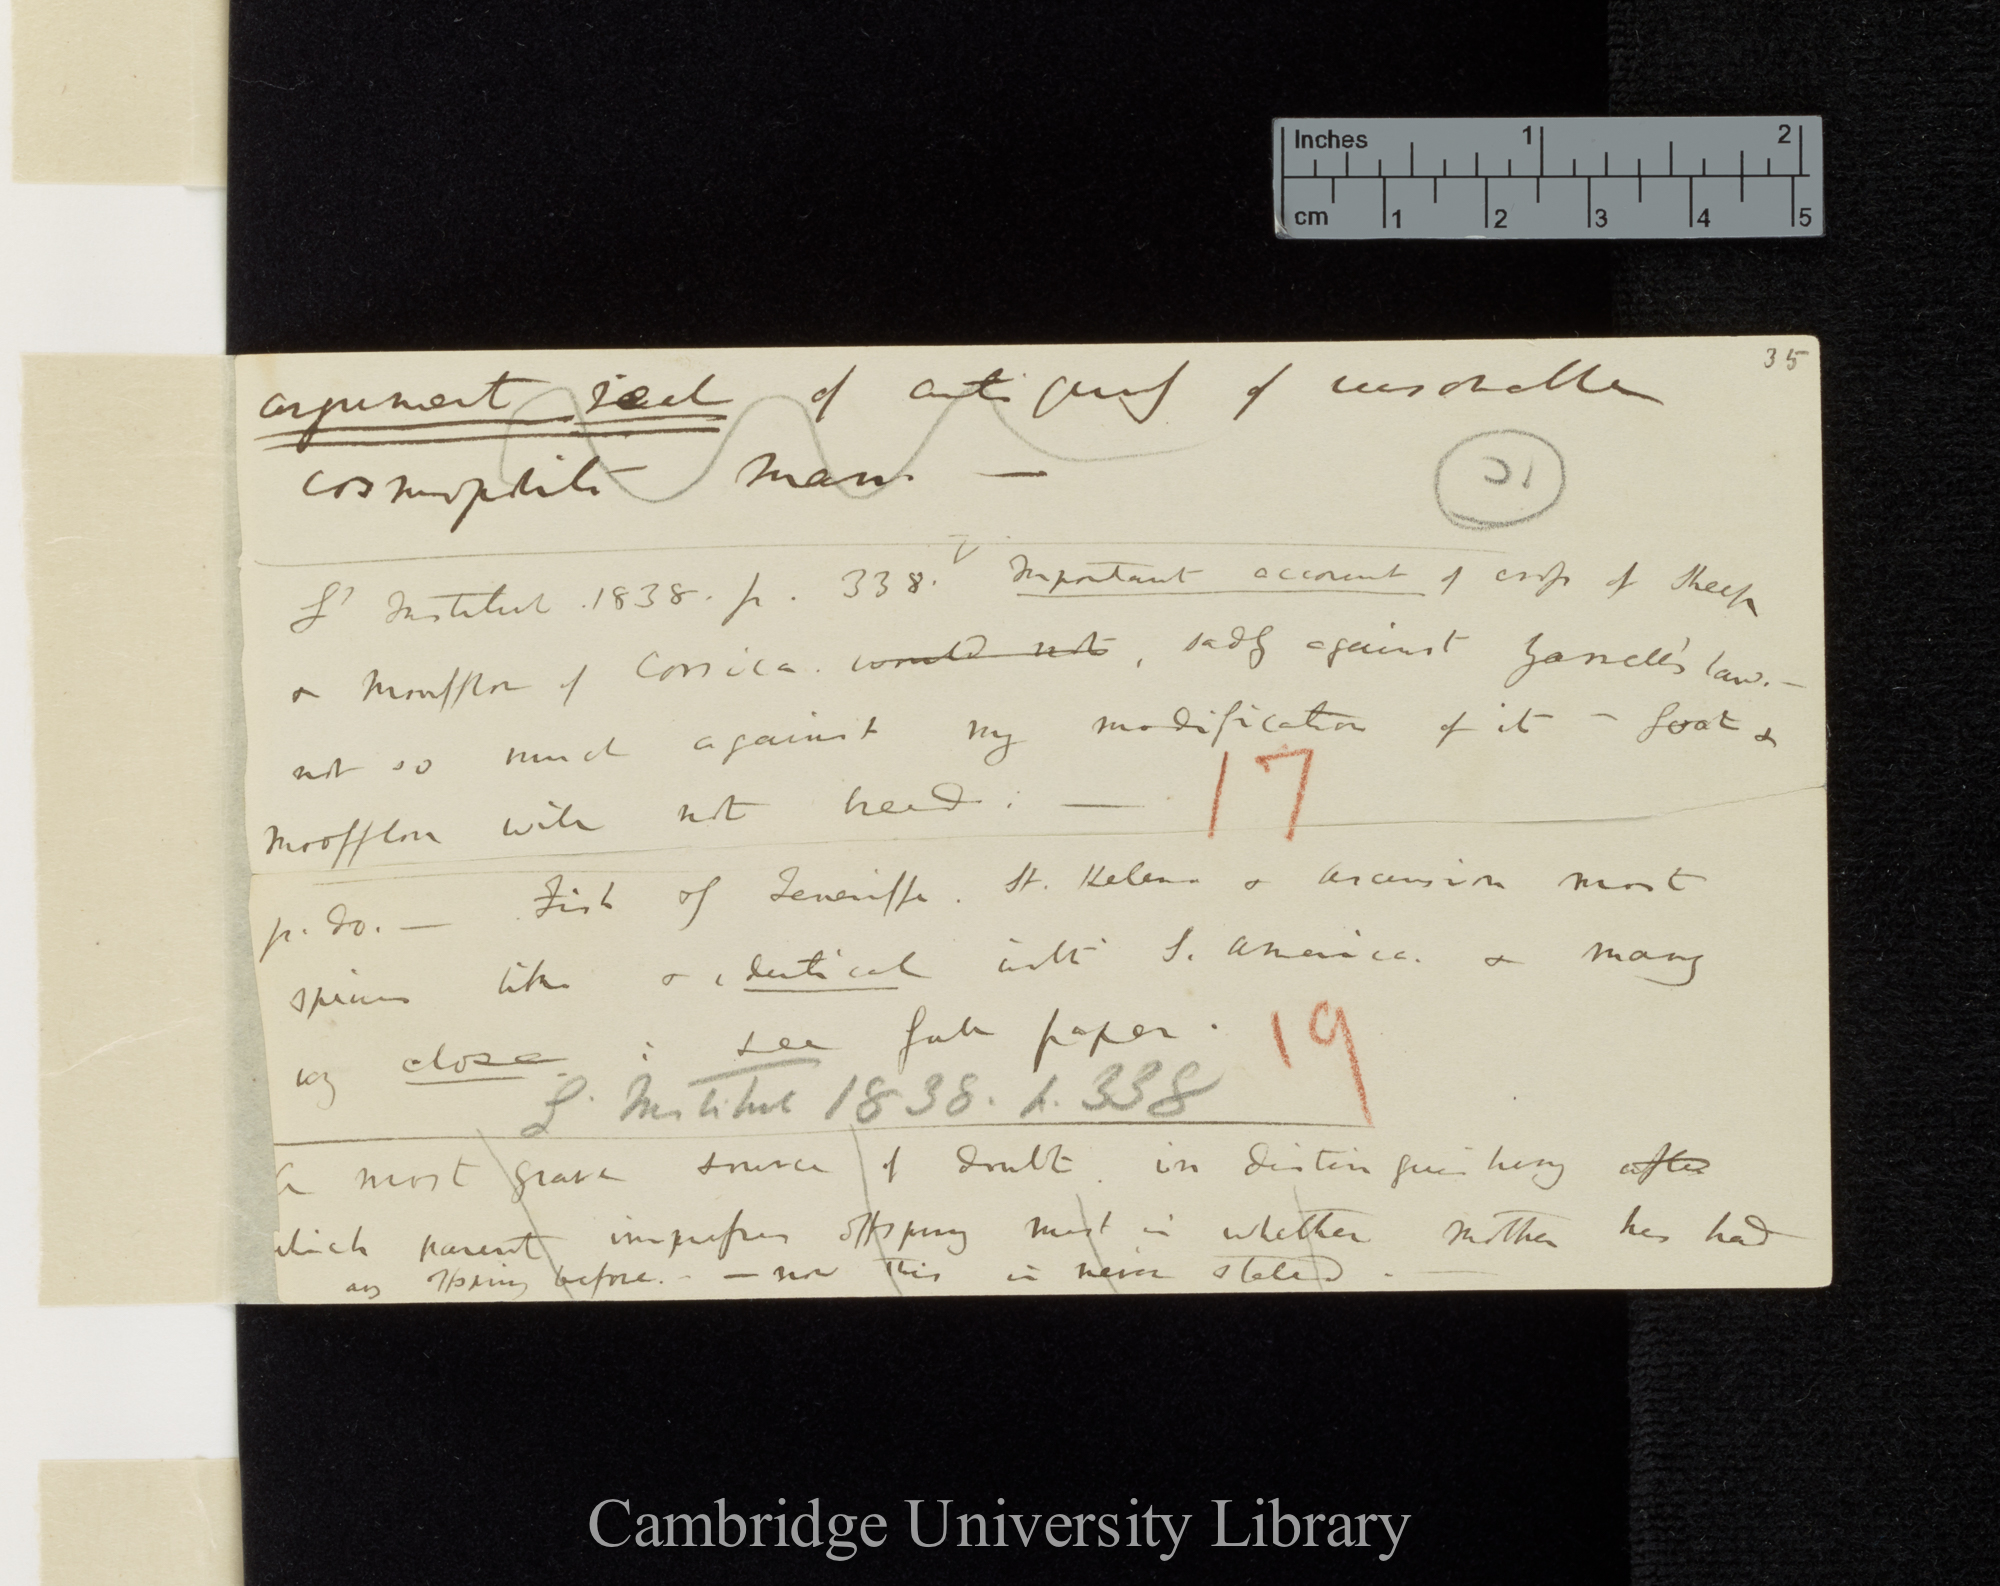 Inches 1 2
cm 1 2 3 4 5
35
argument ideal of antiquity of
cosmopolite man. —
21
L' Institut. 1838. p. 338. Important account of cross of sheep
& Moufflon of Corsica. would not, sadly against Yarrell's law. —
not so much against my modification of it — Goat &
Moofflon will not breed: —
17
p. do. — Fish of Teneriffe. St. Helena & Ascension most
species like & identical with S. America. & many
very close: see full paper.
19
L' Institut 1838. p. 338
A most grave source of doubt in distinguishing after
which parent impresses offspring most is whether mother has had
any offspring before. — now this is never stated. —
Cambridge University Library